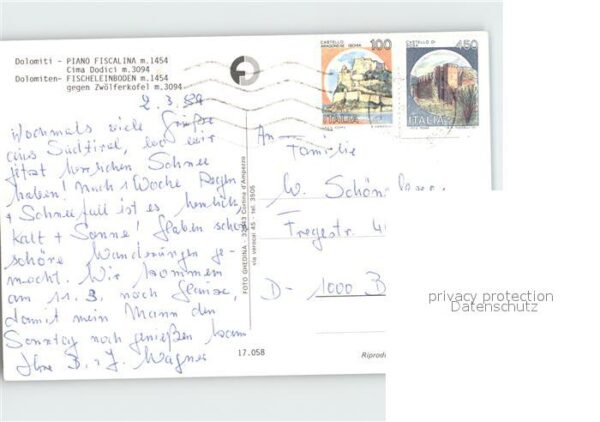 Dolomiti - PIANO FISCALINA m.1454
Cima Dodici m.3094
Dolomiten- FISCHELEINBODEN m.1454
gegen Zwölferkofel m.3094
2.3.89
Nochmals viele Grüße
aus Südtirol, wo wir
jetzt herrlichen Schnee
haben! Nach 1 Woche Regen
+ Schneefall ist es herrlich,
kalt + Sonne! Haben schon
schöne Wanderungen ge-
macht. Wir kommen
am 11.3. nach Hause,
damit mein Mann den
Sonntag noch genießen kann
Ihre B. + J. Wagner
CASTELLO
ARAGONESE ISCHIA
100
ITALIA
CASTELLO DI
ROSA
450
ITALIA
An
Familie
W. Schön
Tregestr. 4
D - 1000 B
FOTO GHEDINA - Cortina d'Ampezzo
via Verocai 45 - tel. 3905
17.058
Riprod
privacy protection
Datenschutz